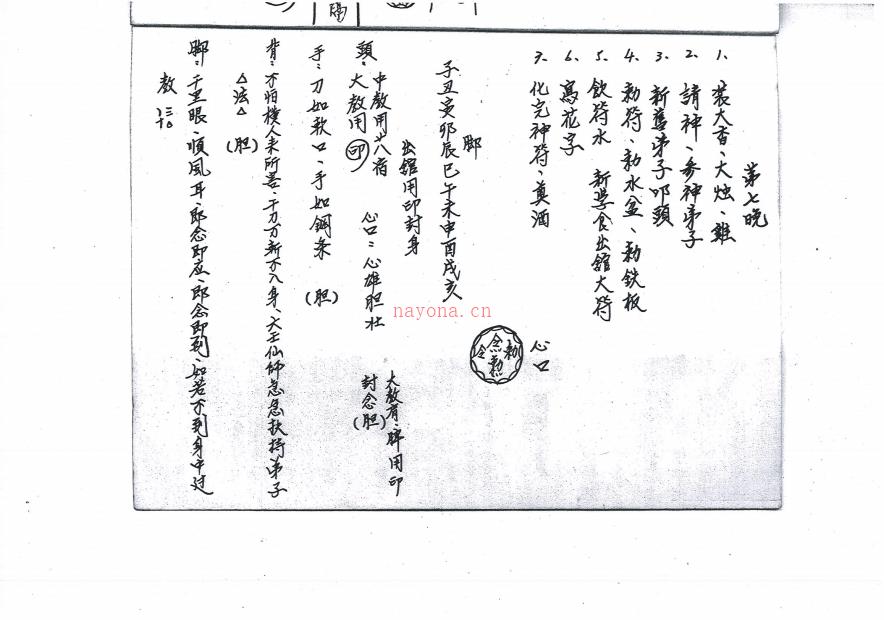 第七晚
1、裝大香、大烛、雞
2、請神、参神弟子
3、新舊弟子叩頭
4、勅符、勅水盆、勅鉄板
5、飲符水 新學食出舘大符
6、寫花字
7、化完神符、奠酒
心口
勅
念
勅
令
脚
子丑寅卯辰巳午未申酉戌亥
出舘用印封身
中教用廿八宿
頭：大教用印
心口：心雄胆壮
大教有：脾用印
封念胆)
手：刀如軟口、手如鋼条 (胆)
背：不怕
人来所害、千刀万斬不入身、大王仙师急急扶持弟子
△法△ (胆)
脚：千里眼、順風耳、即念即应、即念即到、如若不到身中过
教
nayona.cn